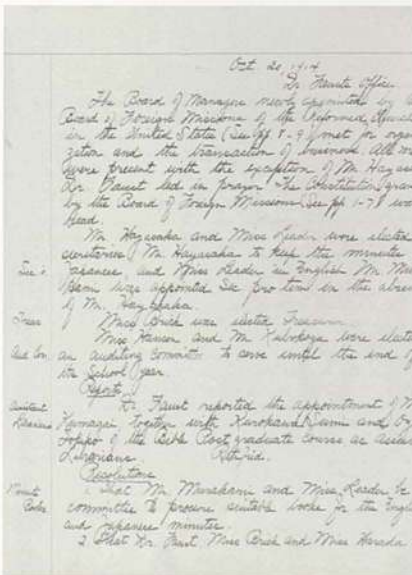 Oct. 20, 1914
Dr. Faust's Office.
The Board of Managers newly appointed by
Board of Foreign Missions of the Reformed Church
in the United States (See pp. 8-9) met for orga
zation and the transaction of business. All
were present with the exception of Mr. Hayasaka
Dr. Faust led in prayer. The Constitution
by the Board of Foreign Missions (See pp. 1-7) was
read.
Mr. Hayasaka and Miss Leader were elected
Mr. Hayasaka to keep the minutes
Japanese, and Miss Leader in English. Mr.
was appointed Sec. pro tem in the absence
of Mr. Hayasaka.
Sec's.
Treas.
Miss Brick was elected Treasurer.
Miss Hansen and Mr. Kubokoya were elected
Aud. Com.
an auditing committee to serve until the end of
the School year.
Reports
Dr. Faust reported the appointment of
Assistant
Kumagai together with Kurokawa and
of the Bible Post graduate course as
Librarians.
Resolutions
1. That Mr. Murakami and Miss Leader be
Minute
Books
committee to procure suitable books for the English
and Japanese minutes.
2. That Dr. Faust, Miss Brick and Miss Harada